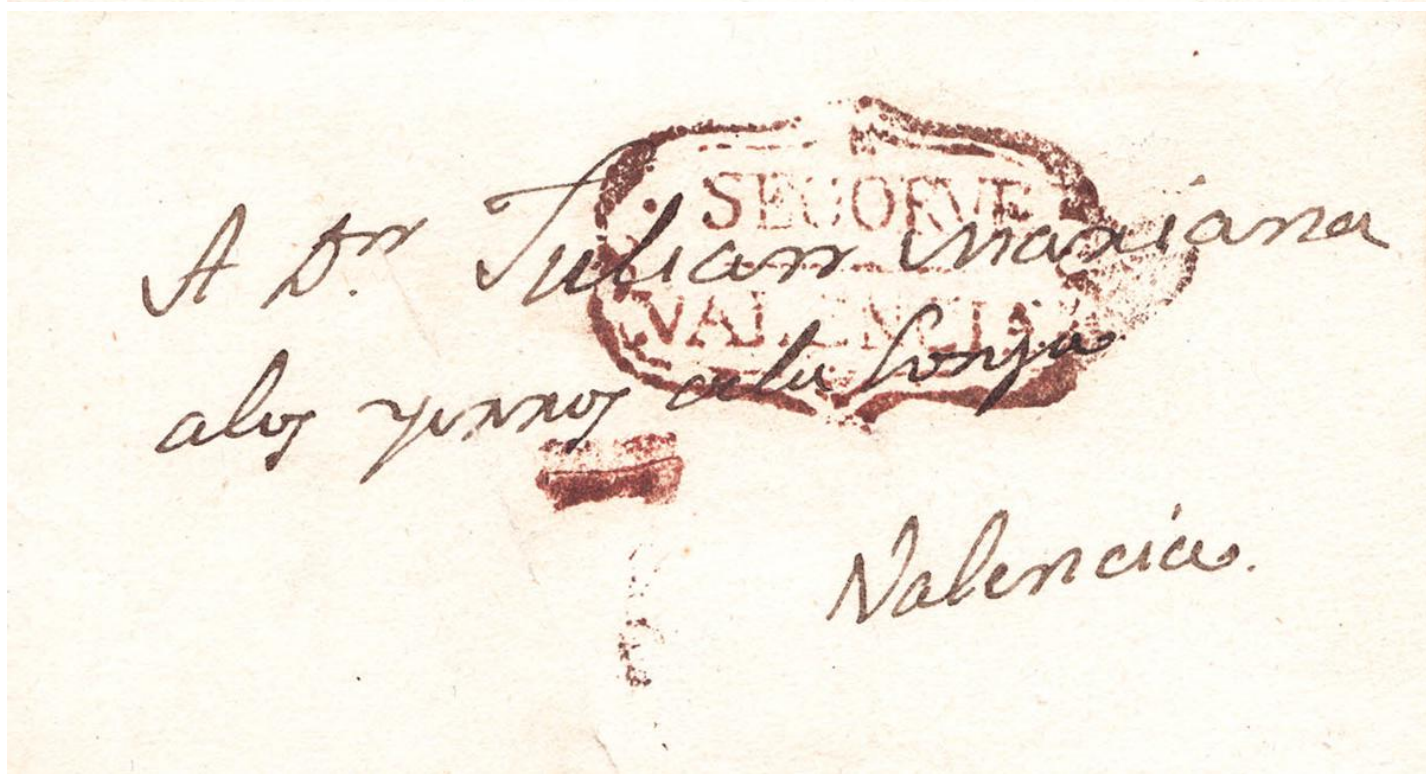 SEGORVE
VALENCIA
A Dn. Julian Mariana
alos yerros dela Lonja
Valencia.